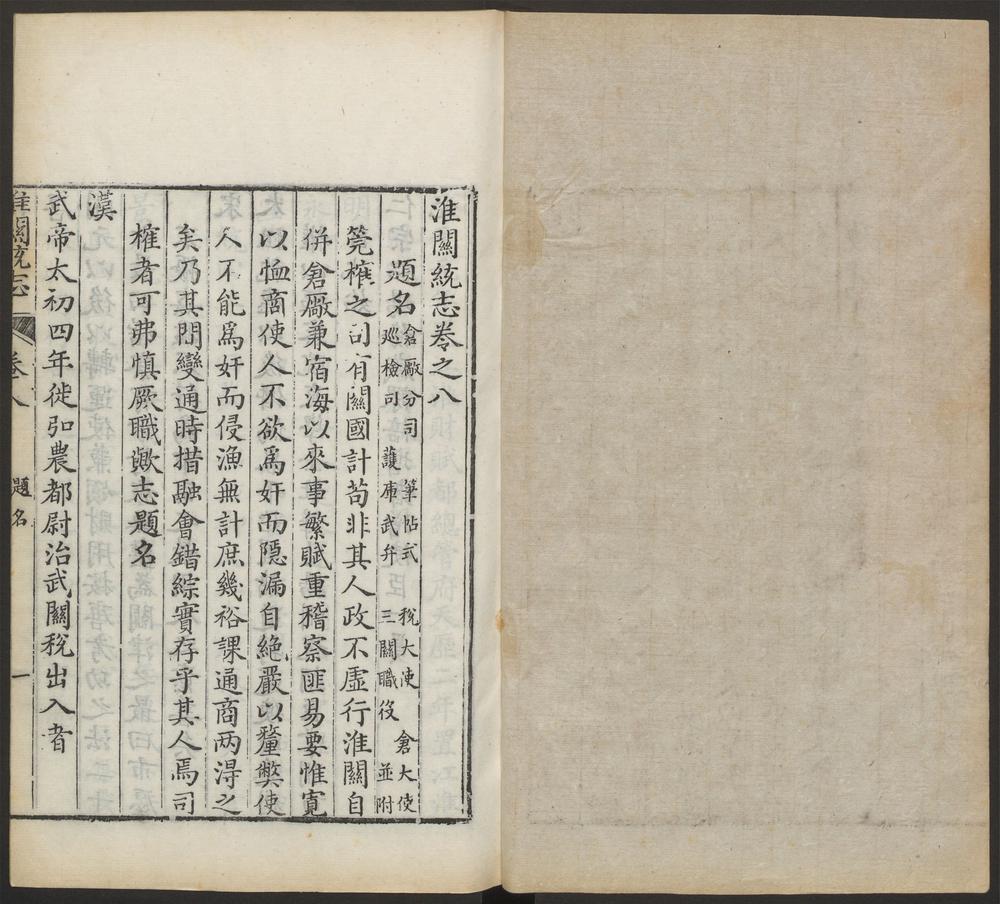 淮關統志卷之八
題名 倉厫分司 筆帖式 稅大使 倉大使
巡檢司 護庫武弁 三關職役 並附
筦榷之司有關國計茍非其人政不虛行淮關自
併倉厫兼宿海以來事繁賦重稽察匪易要惟寛
以恤商使人不欲爲奸而隱漏自絶嚴以釐弊使
人不能爲奸而侵漁無計庶幾裕課通商两淂之
矣乃其間變通時措融會錯綜實存乎其人焉司
榷者可弗慎厥職歟志題名
漢
武帝太初四年徙弘農都尉治武關稅出入者
淮關統志 卷八 題名 一